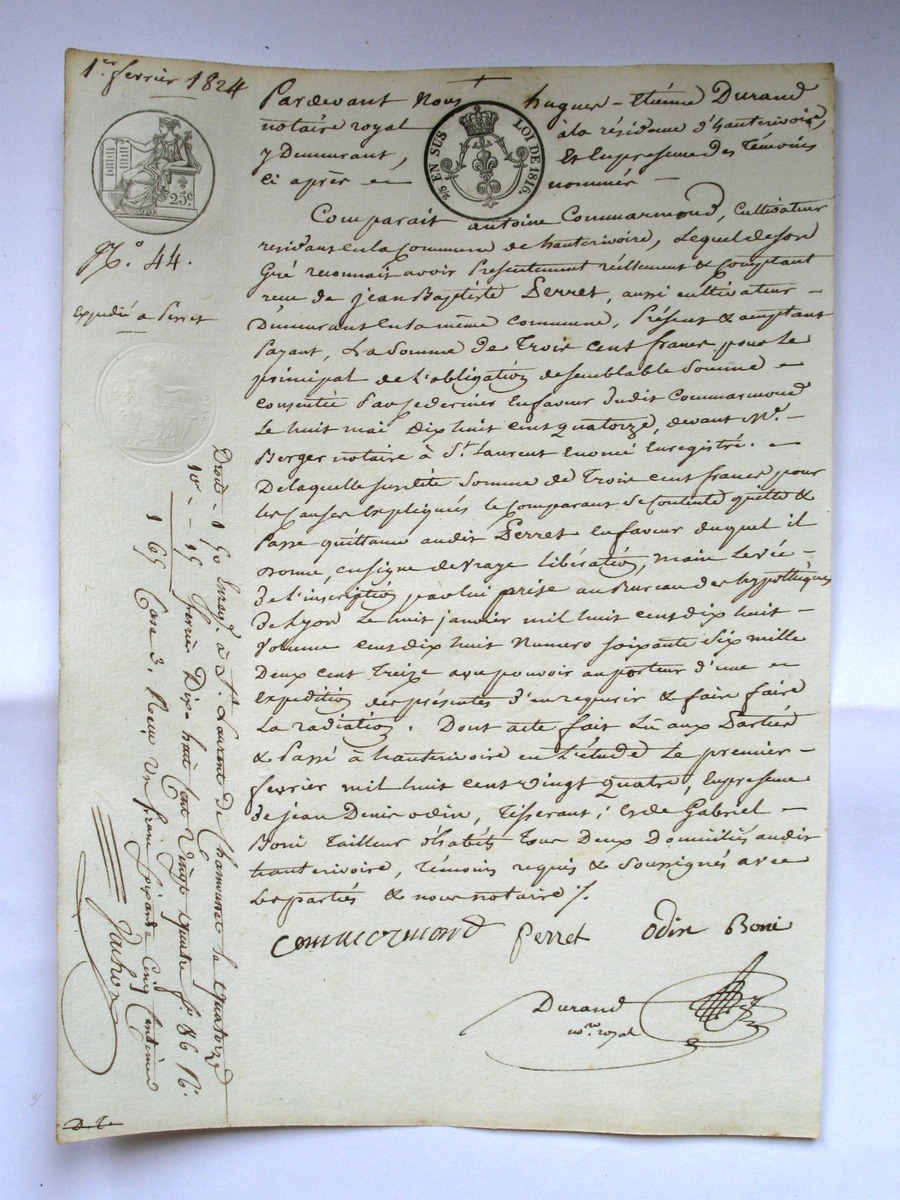 1er fevrier 1824
Pardevant Nous hugues-Etienne Durand
notaire royal à la résidence d'hauterivoire,
y Demeurant, Et En presence des Témoins
ci après nommés
2/5 EN SUS LOI DE 1816.
25c.
N.º 44.
Expedié a Perret
Comparait antoine Commarmond, Cultivateur
residant en la Commune de hauterivoire, Lequel de son
Gré reconnait avoir Presentement réellement & Comptant
recu de jean Baptiste Perret, aussi cultivateur
Demeurant en la même commune, Présent & acceptant
Payant, La Somme de Trois cent francs pour le
principal de l'obligation de semblable Somme
consentie Par ce dernier En faveur dudit Commarmond
Le huit mai Dix huit cent quatorze, devant Me.
Berger notaire à St. Laurent Enregistré.
De laquelle susdite Somme de Trois cent francs pour
les Causes Expliquées le Comparant Se Contente quitte &
Passe quittance audit Perret en faveur duquel il
Donne, en signe de vraye libération, main Levée
De l'inscription par lui prise au Bureau des hypothèques
de Lyon Le huit janvier mil huit cent dix huit
Volume cent dix huit Numero soixante Six mille
Deux cent Treize avec pouvoir au porteur d'une
Expedition des présentes d'en requerir & faire faire
La radiation. Dont acte fait Lû aux Parties
& Passé à hauterivoire en L'étude Le premier
fevrier mil huit cent vingt quatre, En presence
de jean Denis odin, Tisserant; Et de Gabriel
Boni Tailleur d'habits Tous Deux Domiciliés audit
hauterivoire, Témoins requis & Soussignés avec
Les parties & nous notaire ./.
Commarmond Perret Odin Boni
Durand
nore. royal
Droits - 1 50 Enregé. à St. Laurent de Chamousset le quatorze
10e - - 15 fevrier Dix-huit Cent vingt quatre fo. 86 Ro.
1 65 Case 3. Reçu Un franc soixante Cinq Centimes